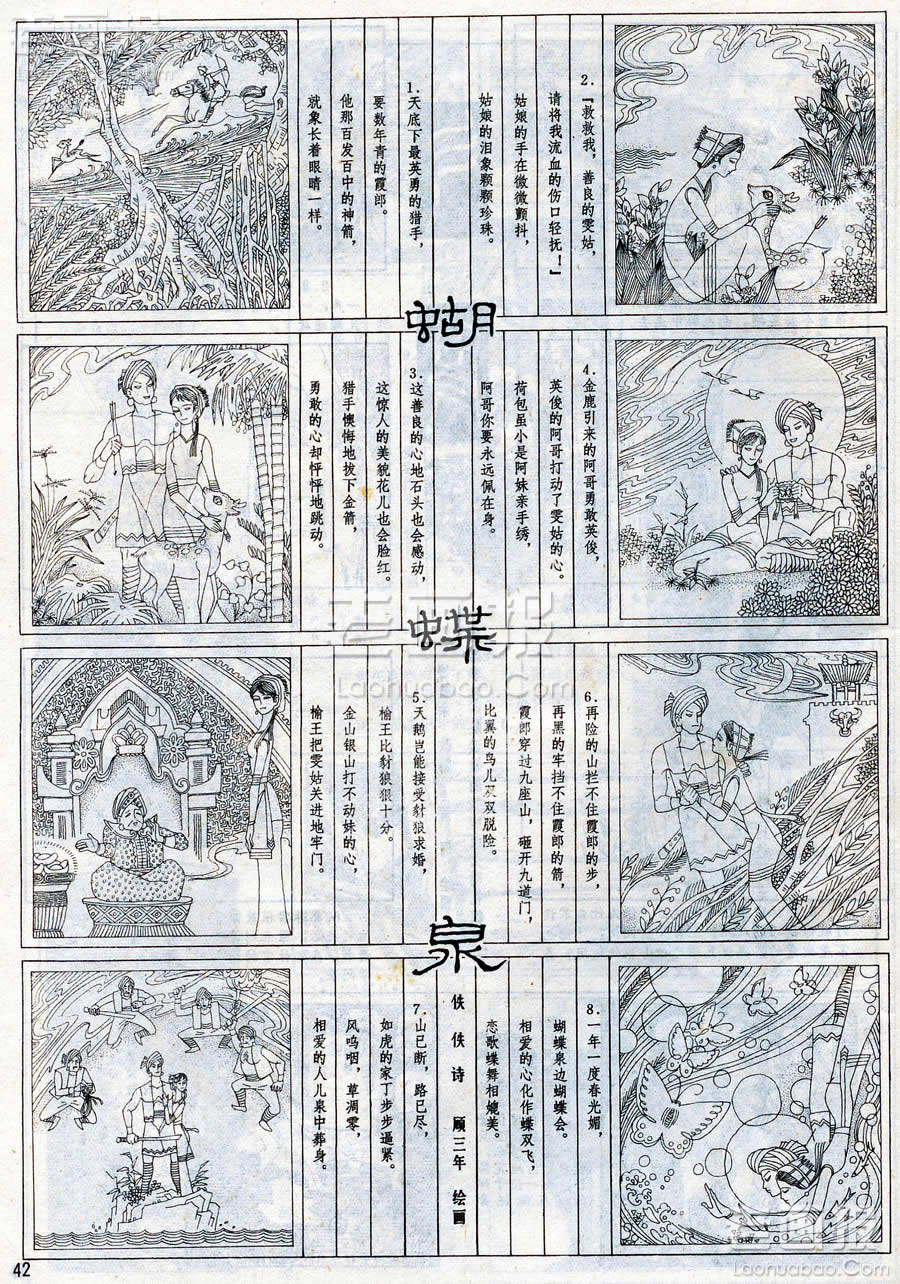 蝴
蝶
泉
佚佚诗 顾三年 绘画
1.天底下最英勇的猎手，
要数年青的霞郎。
他那百发百中的神箭，
就象长着眼睛一样。
2.『救救我，善良的雯姑，
请将我流血的伤口轻抚！』
姑娘的手在微微颤抖，
姑娘的泪象颗颗珍珠。
3.这善良的心地石头也会感动，
这惊人的美貌花儿也会脸红。
猎手懊悔地拔下金箭，
勇敢的心却怦怦地跳动。
4.金鹿引来的阿哥勇敢英俊，
英俊的阿哥打动了雯姑的心。
荷包虽小是阿妹亲手绣，
阿哥你要永远佩在身。
5.天鹅岂能接受豺狼求婚，
榆王比豺狼狠十分。
金山银山打不动妹的心，
榆王把雯姑关进地牢门。
6.再险的山拦不住霞郎的步，
再黑的牢挡不住霞郎的箭，
霞郎穿过九座山，砸开九道门，
比翼的鸟儿双双脱险。
7.山已断，路已尽，
如虎的家丁步步逼紧。
风呜咽，草凋零，
相爱的人儿泉中葬身。
8.一年一度春光媚，
蝴蝶泉边蝴蝶会。
相爱的心化作蝶双飞，
恋歌蝶舞相媲美。
42
老画报
Laohuabao.Com
老画报
Laohuabao.Com